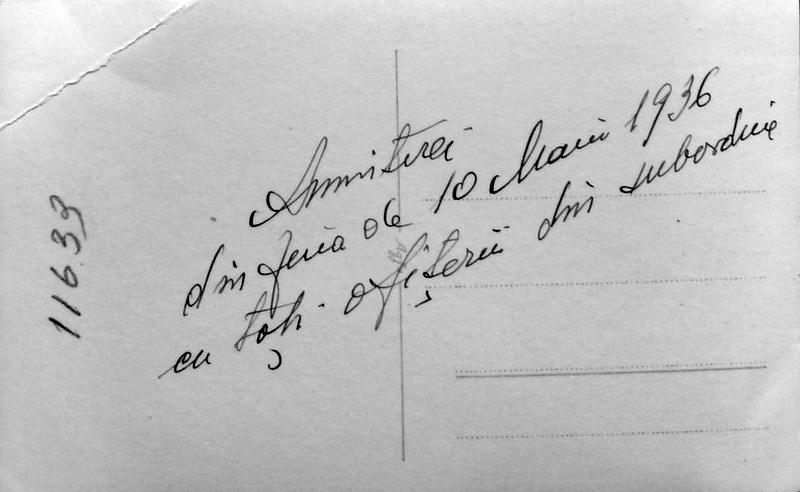 Amintirei
din ziua de 10 Maiu 1936
cu toți ofițerii din subordine
11633